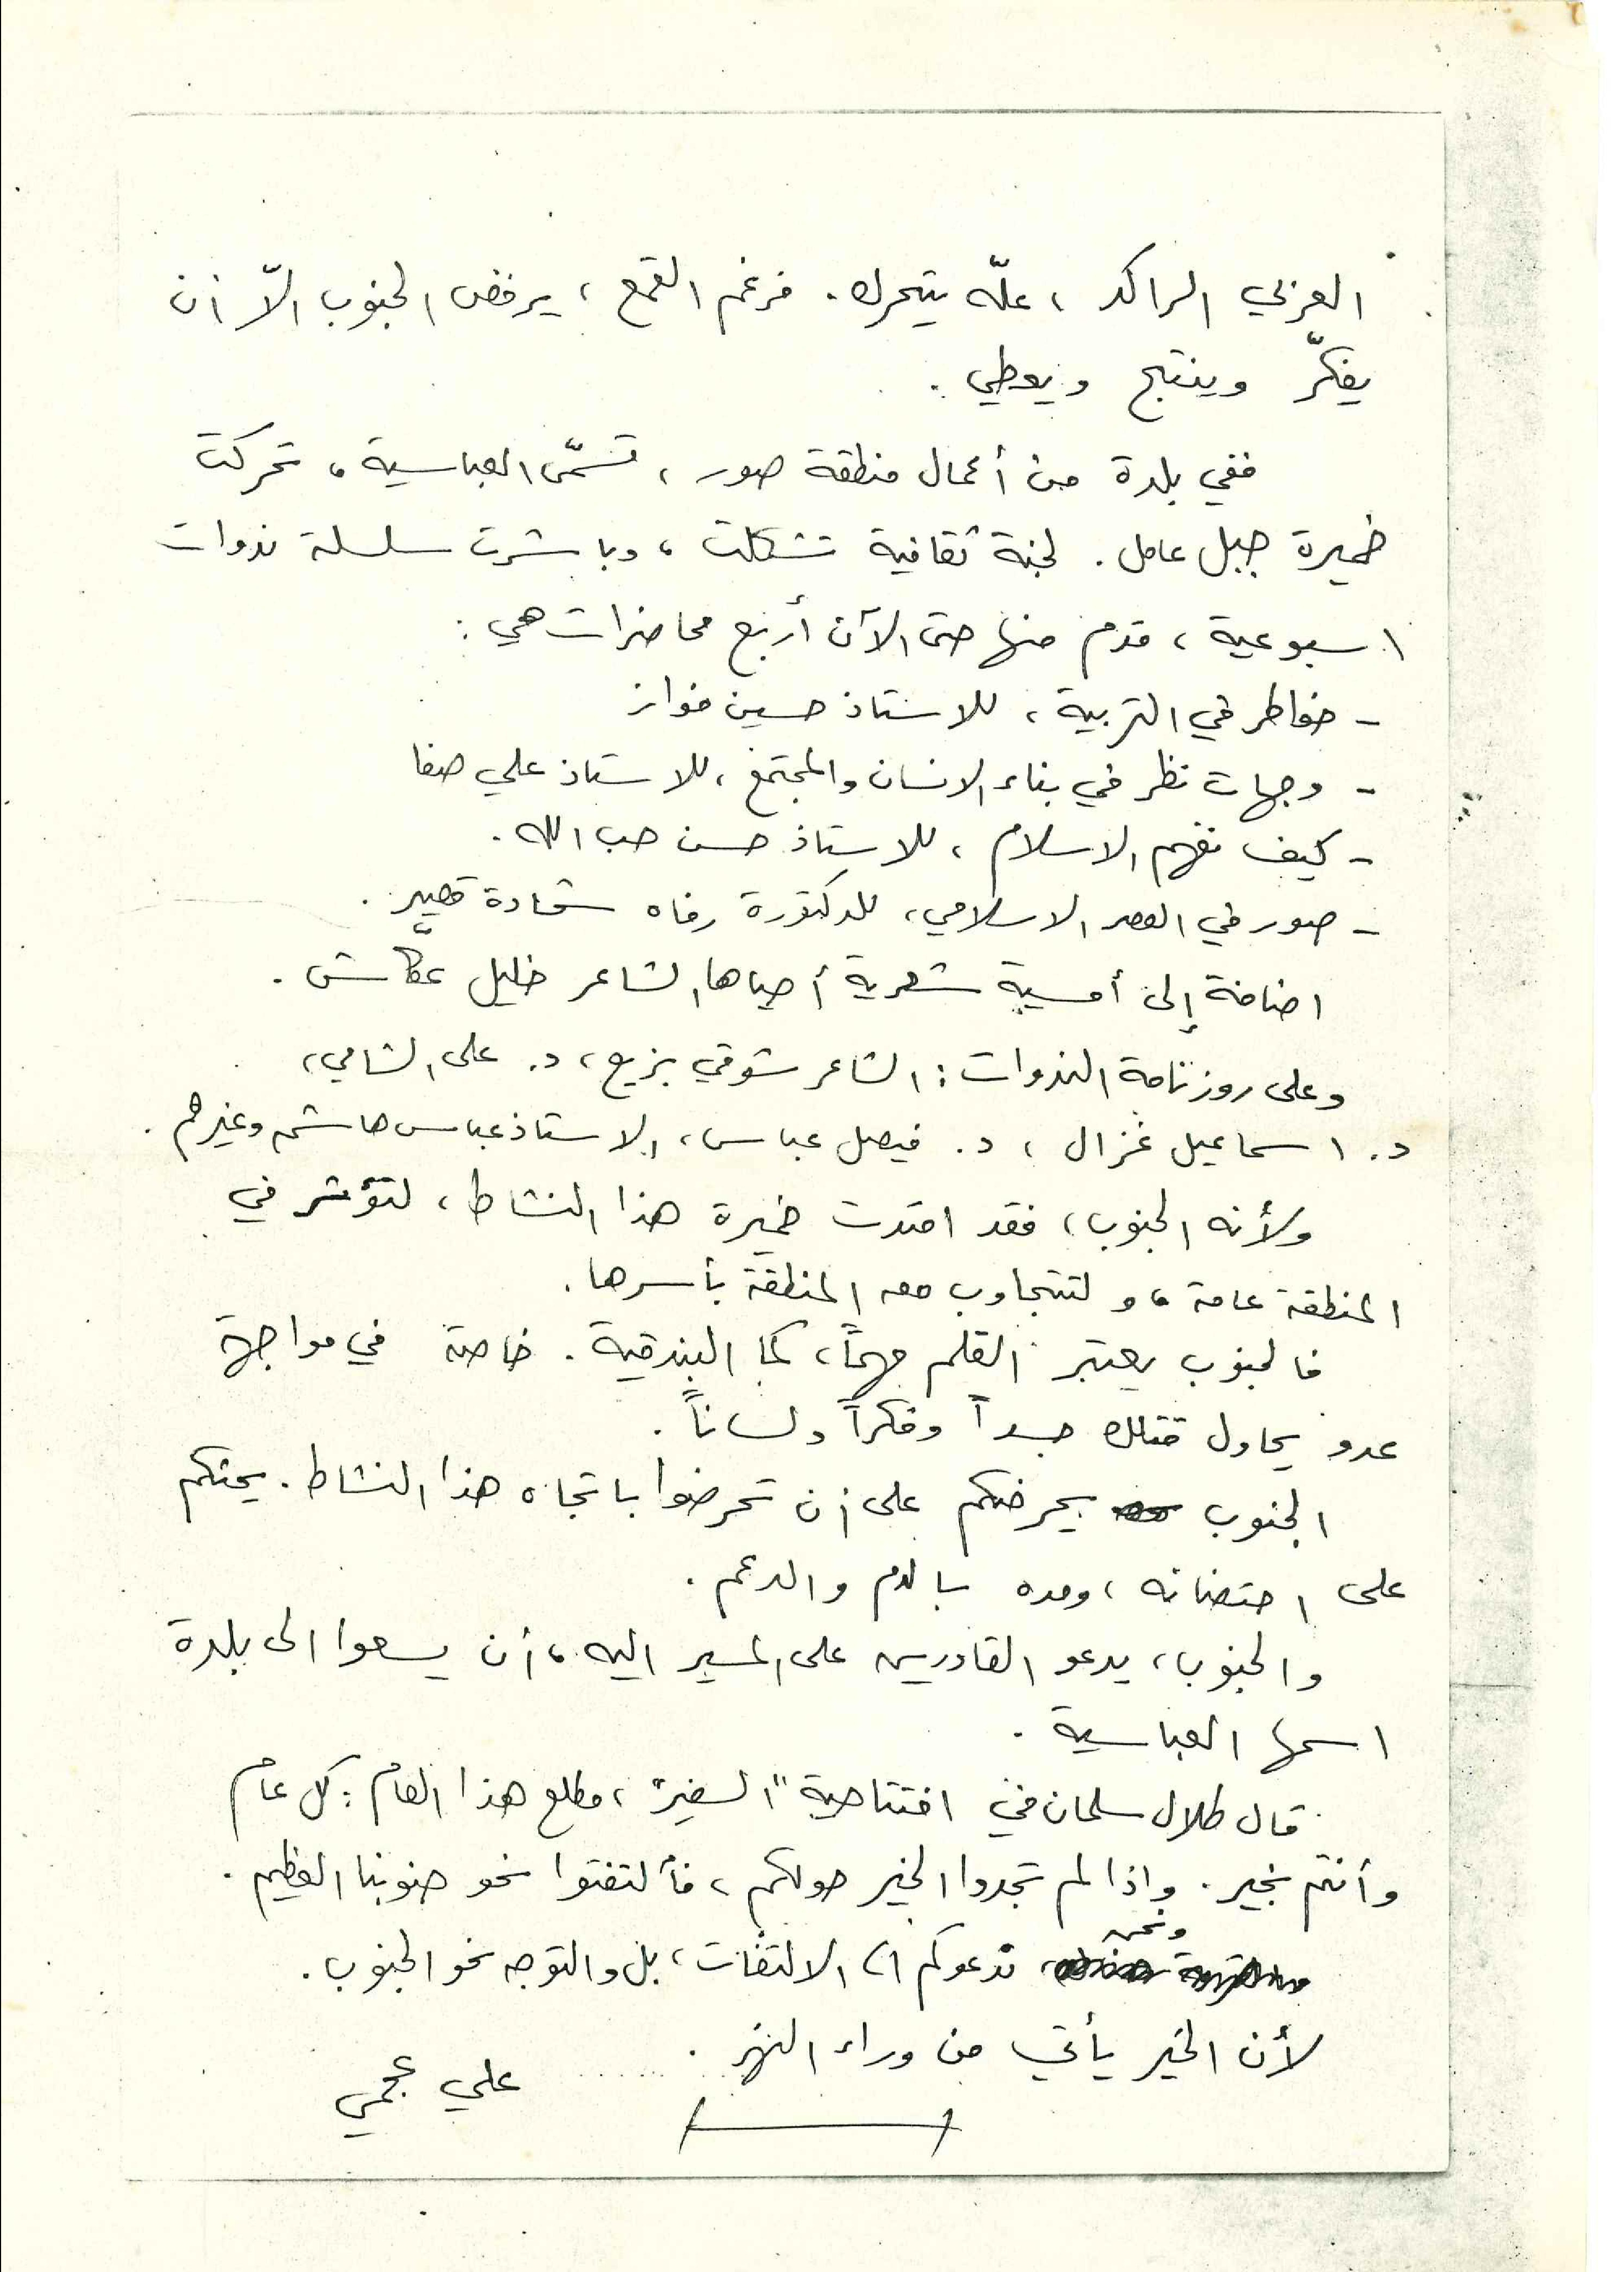 العربي الراكد ، علّه يتحرك . فرغم القمع ، يرفض الجنوب الاّ ان
يفكّر وينتج ويعطي .
ففي بلدة من أعمال منطقة صور ، تسمّى العباسية ، تحركت
خميرة جبل عامل . لجنة ثقافية تشكلت ، وباشرت سلسلة ندوات
اسبوعية ، قدم منها حتى الآن أربع محاضرات هي :
- خواطر في التربية ، للاستاذ حسين فواز
- وجهات نظر في بناء الانسان والمجتمع ، للاستاذ علي صفا
- كيف نفهم الاسلام ، للاستاذ حسن حب الله .
- صور في العصر الاسلامي ، للدكتورة رفاه شحادة قصير .
اضافة إلى أمسية شعرية أحياها الشاعر خليل عكّاش .
وعلى روزنامة الندوات : الشاعر شوقي بزيع ، د. على الشامي ،
د. اسماعيل غزال ، د. فيصل عباس ، الاستاذ عباس هاشم وغيرهم .
ولأنه الجنوب ، فقد امتدت خميرة هذا النشاط ، لتؤشر في
المنطقة عامة ، و لتتجاوب معه المنطقة بأسرها .
فالجنوب يعتبر القلم مهماً ، كما البندقية . خاصة في مواجهة
عدو يحاول قتلك جسداً وفكراً ولساناً .
الجنوب يحرضكم على ان تحرضوا باتجاه هذا النشاط . يحثكم
على احتضانه ، ومده بالدم والدعم .
والجنوب ، يدعو القادرين على المسير اليه ، أن يسعوا الى بلدة
اسمها العباسية .
قال طلال سلمان في افتتاحية "السفير" ، مطلع هذا العام : كل عام
وأنتم بخير . واذا لم تجدوا الخير حولكم ، فألتفتوا نحو جنوبنا العظيم .
ونحن ندعوكم الى الالتفات ، بل والتوجه نحو الجنوب .
لأن الخير يأتي من وراء النهر .
علي عجمي